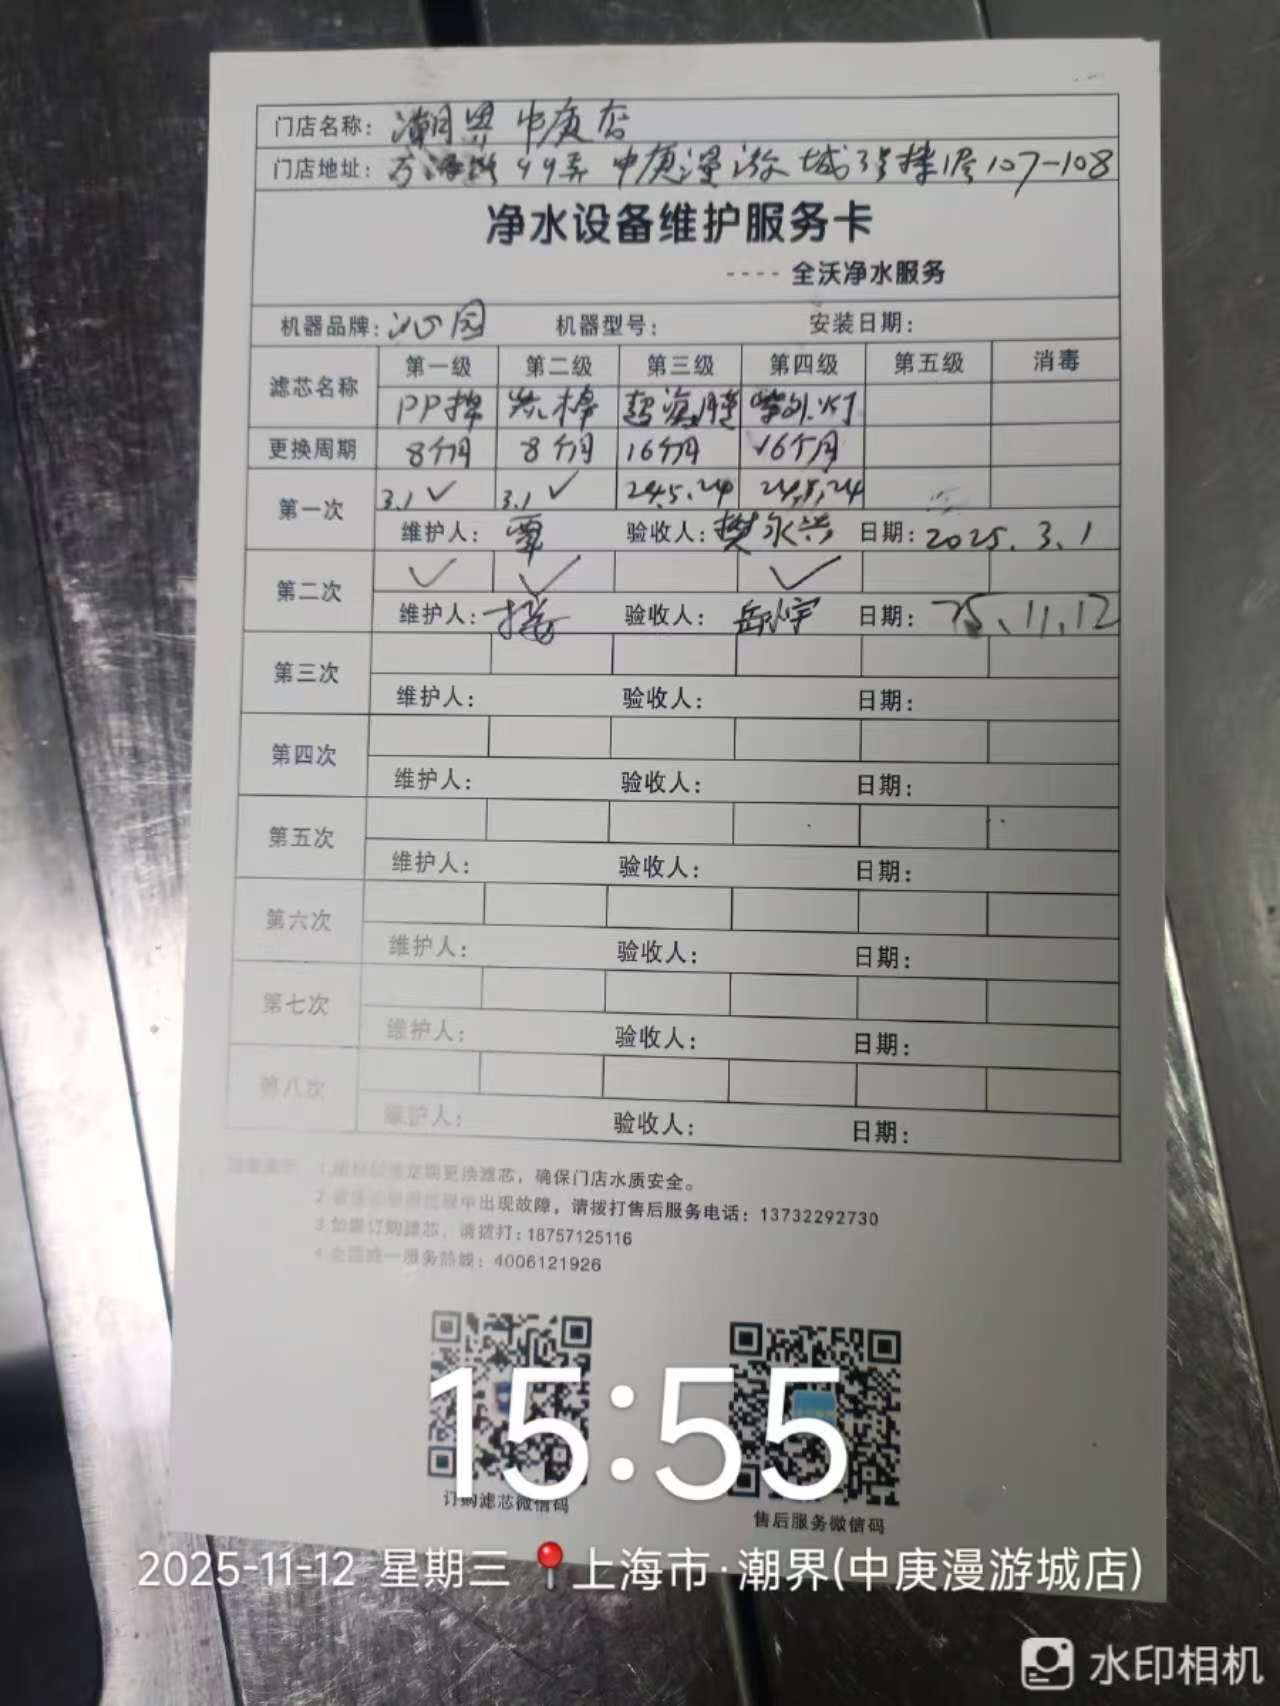 门店名称：潮界中庚店
门店地址：99弄 中庚漫游城3号楼1层107-108
净水设备维护服务卡
---- 全沃净水服务
机器品牌：沁园 机器型号： 安装日期：
滤芯名称 第一级 第二级 第三级 第四级 第五级 消毒
PP棉 炭棒 超滤膜 紫外灯
更换周期 8个月 8个月 16个月 16个月
第一次 3.1 ✓ 3.1 ✓ 24.5.24 24.5.24
维护人： 覃 验收人：樊永兴 日期：2025.3.1
第二次 ✓ ✓ ✓
维护人： 验收人： 日期：25.11.12
第三次
维护人： 验收人： 日期：
第四次
维护人： 验收人： 日期：
第五次
维护人： 验收人： 日期：
第六次
维护人： 验收人： 日期：
第七次
维护人： 验收人： 日期：
第八次
维护人： 验收人： 日期：
定期更换滤芯，确保门店水质安全。
2 中出现故障，请拨打售后服务电话：13732292730
3 如需订购滤芯，请拨打：18757125116
4 全国统一服务热线：4006121926
15:55
订购滤芯微信码
售后服务微信码
2025-11-12 星期三 上海市·潮界(中庚漫游城店)
水印相机